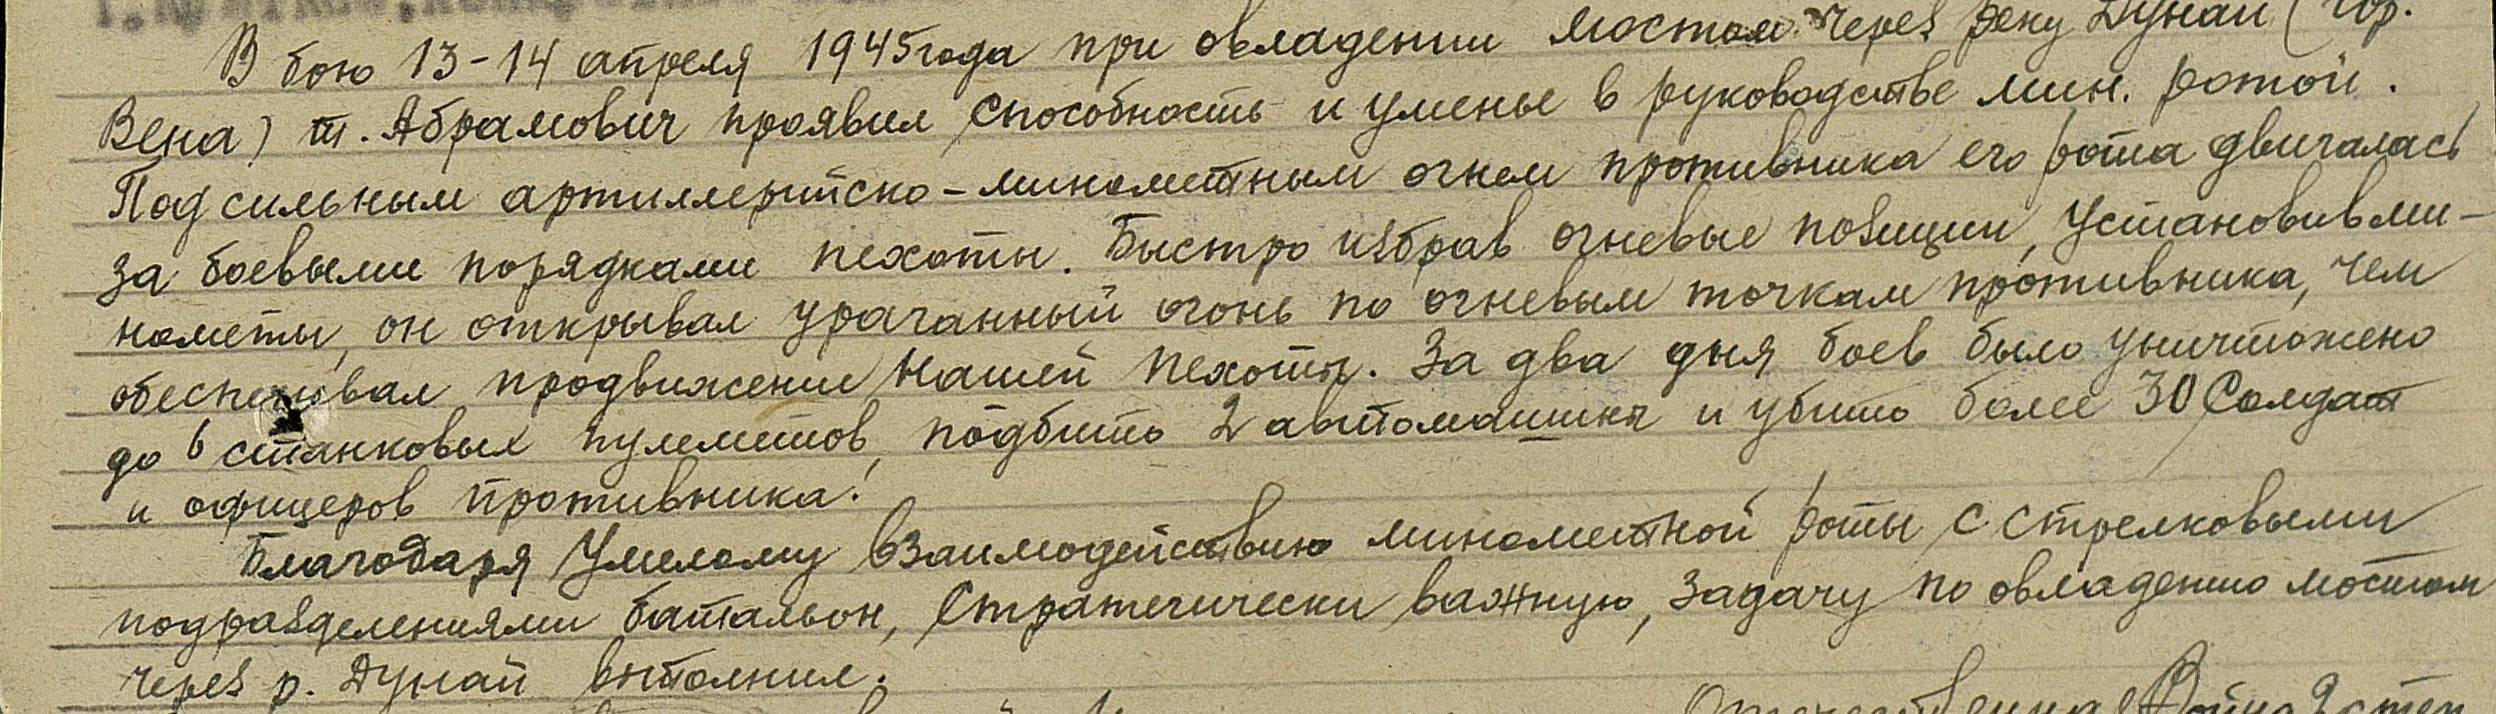 В бою 13-14 апреля 1945 года при овладении мостом через реку Дунай (гор.
Вена) т. Абрамович проявил способность и уменье в руководстве мин. ротой.
Под сильным артиллерийско-минометным огнем противника его рота двигалась
за боевыми порядками пехоты. Быстро избрав огневые позиции, установив ми-
нометы, он открывал ураганный огонь по огневым точкам противника, чем
обеспечивал продвижение нашей пехоты. За два дня боев было уничтожено
до 6 станковых пулеметов, подбито 2 автомашины и убито более 30 солдат
и офицеров противника.
Благодаря умелому взаимодействию минометной роты с стрелковыми
подразделениями батальон, стратегически важную, задачу по овладению мостом
через р. Дунай выполнил.